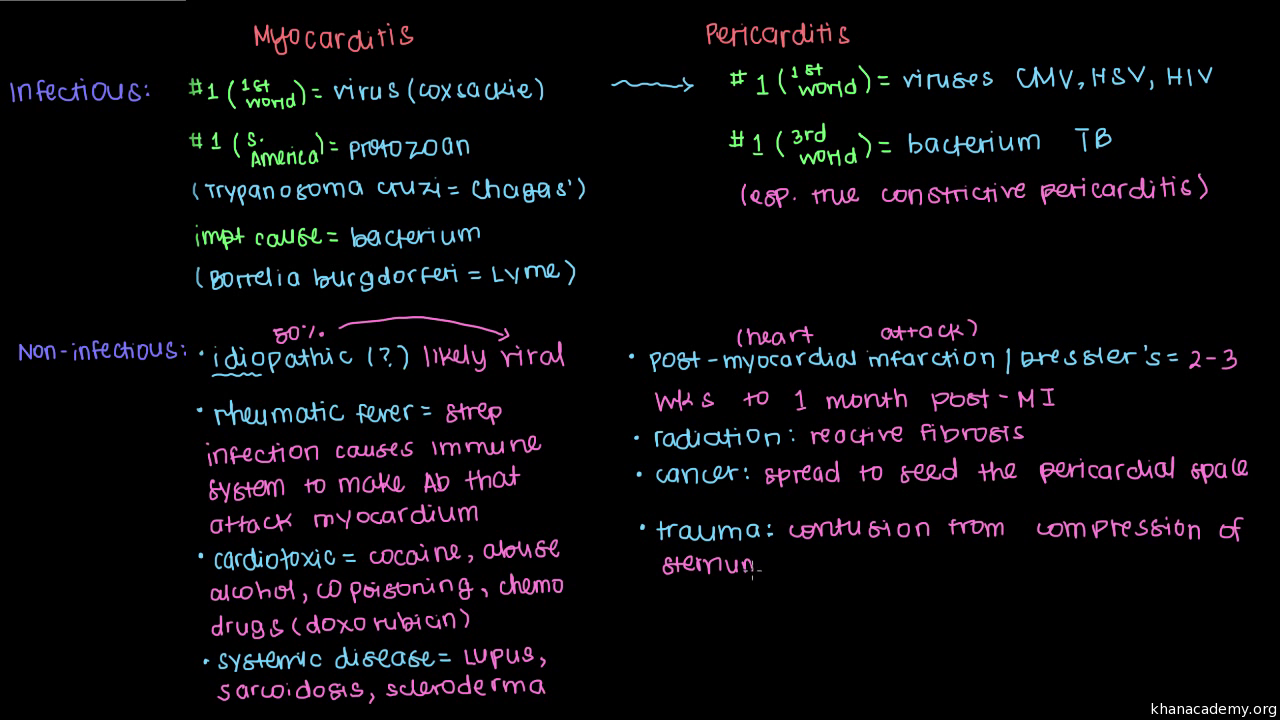 Myocarditis
Infectious: #1 (1st world) = virus (coxsackie)
#1 (S. America) = protozoan
(Trypanosoma cruzi = Chagas')
impt cause = bacterium
(Borrelia burgdorferi = Lyme)
Non-infectious:
50%
• idiopathic (?) likely viral
• rheumatic fever = strep
infection causes immune
system to make Ab that
attack myocardium
• cardiotoxic = cocaine, abuse
alcohol, CO poisoning, chemo
drugs (doxorubicin)
• systemic disease = Lupus,
sarcoidosis, scleroderma
Pericarditis
#1 (1st world) = viruses CMV, HSV, HIV
#1 (3rd world) = bacterium TB
(esp. true constrictive pericarditis)
(heart attack)
• post-myocardial infarction / Dressler's = 2-3
wks to 1 month post-MI
• radiation: reactive fibrosis
• cancer: spread to seed the pericardial space
• trauma: contusion from compression of
sternum
khanacademy.org